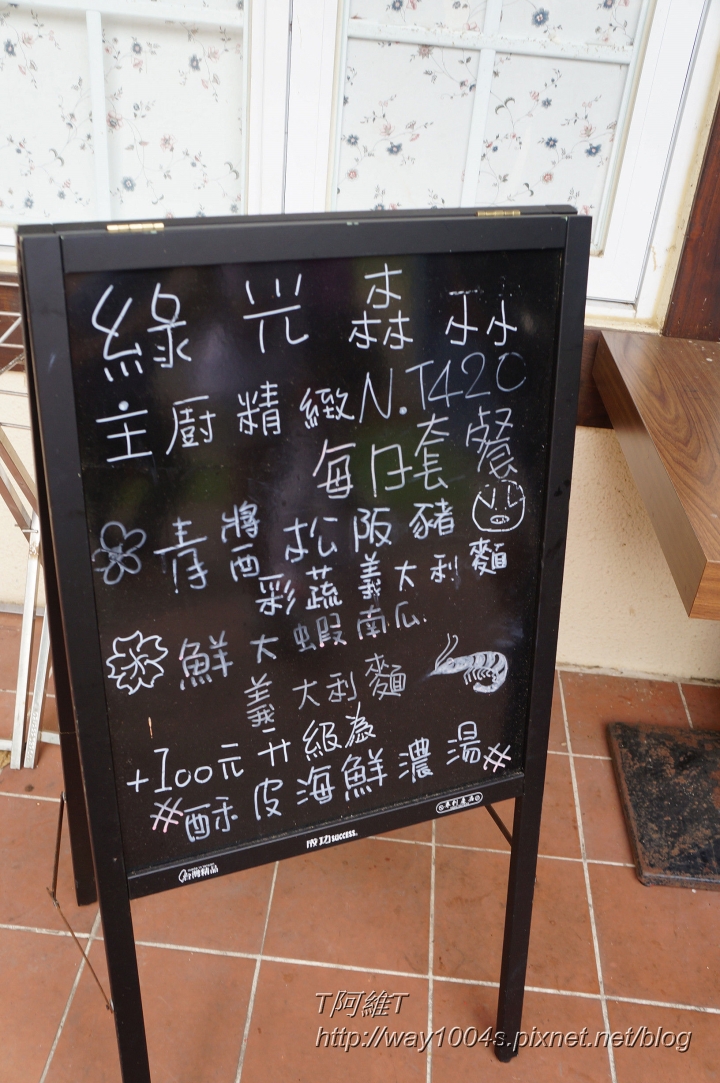 綠光森林
主廚精緻N.T420
每日套餐
青醬松阪豬
彩蔬義大利麵
鮮大蝦南瓜
義大利麵
+100元升級為
#酥皮海鮮濃湯#
成功success.
台灣精品
專利產品
T阿維T
http://way1004s.pixnet.net/blog